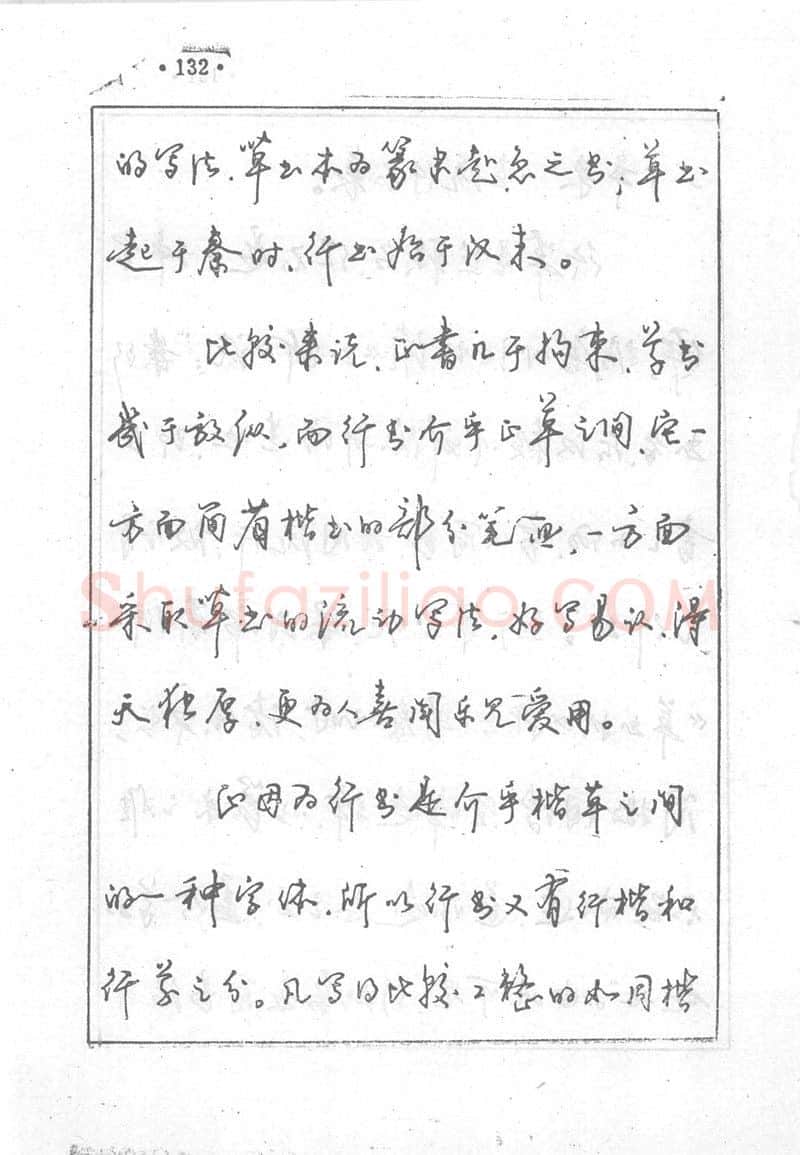 ·132·
的写法,草书本为篆隶赴急之书,草书
起于秦时,行书始于汉末。
比较来说,正书几于拘束,草书
几于放纵,而行书介乎正草之间,它一
方面简省楷书的部分笔画,一方面
采取草书的流动写法,好写易认,得
天独厚,更为人喜闻乐见爱用。
正因为行书是介乎楷草之间
的一种字体,所以行书又有行楷和
行草之分。凡写得比较工整的如同楷
Shufaziliao.COM